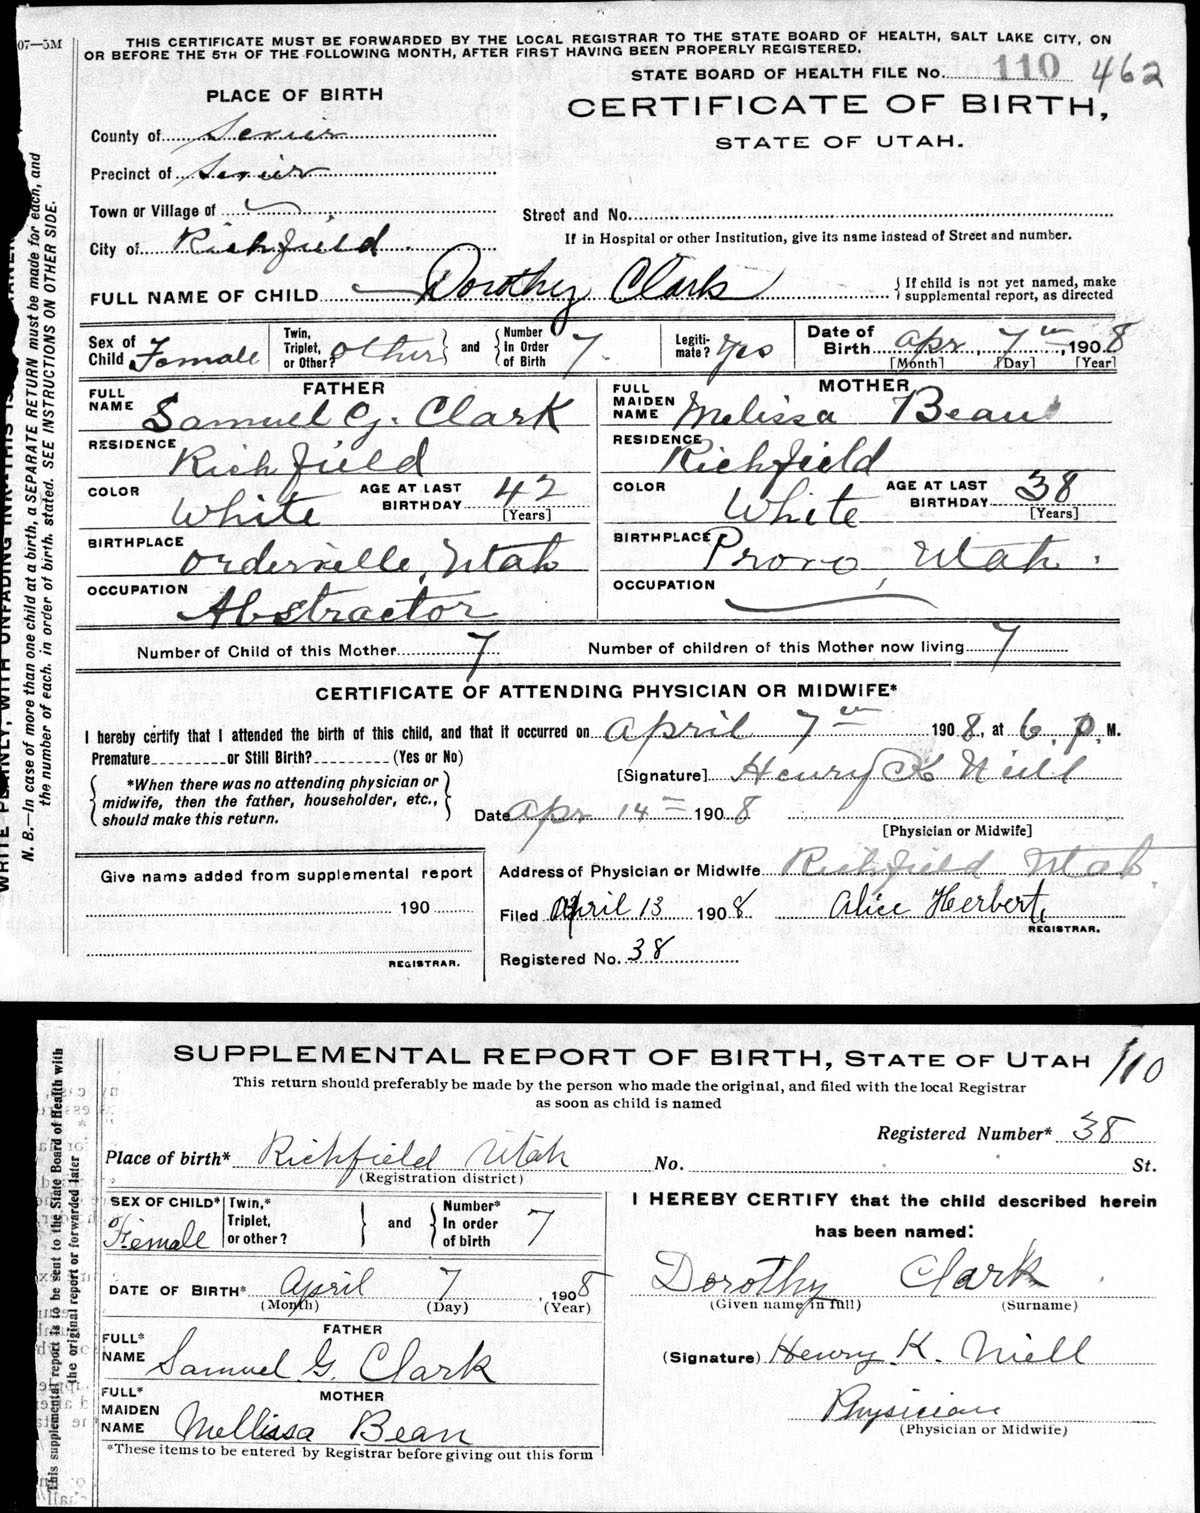 07—5M
THIS CERTIFICATE MUST BE FORWARDED BY THE LOCAL REGISTRAR TO THE STATE BOARD OF HEALTH, SALT LAKE CITY, ON
OR BEFORE THE 5TH OF THE FOLLOWING MONTH, AFTER FIRST HAVING BEEN PROPERLY REGISTERED.
STATE BOARD OF HEALTH FILE No. 110 462
PLACE OF BIRTH
CERTIFICATE OF BIRTH,
STATE OF UTAH.
County of Sevier
Precinct of Sevier
Town or Village of
Street and No.
City of Richfield
If in Hospital or other Institution, give its name instead of Street and number.
FULL NAME OF CHILD Dorothy Clark
{ If child is not yet named, make
supplemental report, as directed
Sex of Child Female
Twin, Triplet, or Other? other } and { Number In Order of Birth 7.
Legiti- mate? Yes
Date of Birth Apr, 7th, 1908
[Month] [Day] [Year]
FATHER
FULL NAME Samuel G. Clark
RESIDENCE Richfield
COLOR White
AGE AT LAST BIRTHDAY 42
[Years]
BIRTHPLACE Orderville, Utah
OCCUPATION Abstractor
MOTHER
FULL MAIDEN NAME Melissa Bean
RESIDENCE Richfield
COLOR White
AGE AT LAST BIRTHDAY 38
[Years]
BIRTHPLACE Provo, Utah.
OCCUPATION
Number of Child of this Mother 7
Number of children of this Mother now living 7
CERTIFICATE OF ATTENDING PHYSICIAN OR MIDWIFE*
I hereby certify that I attended the birth of this child, and that it occurred on April 7th 1908, at 6. P. M.
Premature or Still Birth? (Yes or No)
{ *When there was no attending physician or
midwife, then the father, householder, etc.,
should make this return. }
[Signature] Henry K Niell
Date Apr 14th 1908
[Physician or Midwife]
Address of Physician or Midwife Richfield Utah.
Give name added from supplemental report
190
REGISTRAR.
Filed April 13 1908 Alice Herbert,
REGISTRAR.
Registered No. 38
N. B.—In case of more than one child at a birth, a SEPARATE RETURN must be made for each, and
the number of each, in order of birth, stated. SEE INSTRUCTIONS ON OTHER SIDE.
WRITE PLAINLY, WITH UNFADING INK—THIS IS
SUPPLEMENTAL REPORT OF BIRTH, STATE OF UTAH 110
This return should preferably be made by the person who made the original, and filed with the local Registrar
as soon as child is named
Registered Number* 38
Place of birth* Richfield Utah No. St.
(Registration district)
SEX OF CHILD* Female
Twin,* Triplet, or other? } and { Number* In order of birth 7
DATE OF BIRTH* April 7, 1908
(Month) (Day) (Year)
FATHER
FULL* NAME Samuel G. Clark
MOTHER
FULL* MAIDEN NAME Mellissa Bean
*These items to be entered by Registrar before giving out this form
I HEREBY CERTIFY that the child described herein
has been named:
Dorothy Clark
(Given name in full) (Surname)
(Signature) Henry K. Niell
Physician
(Physician or Midwife)
This supplemental report is to be sent to the State Board of Health with
the original report or forwarded later